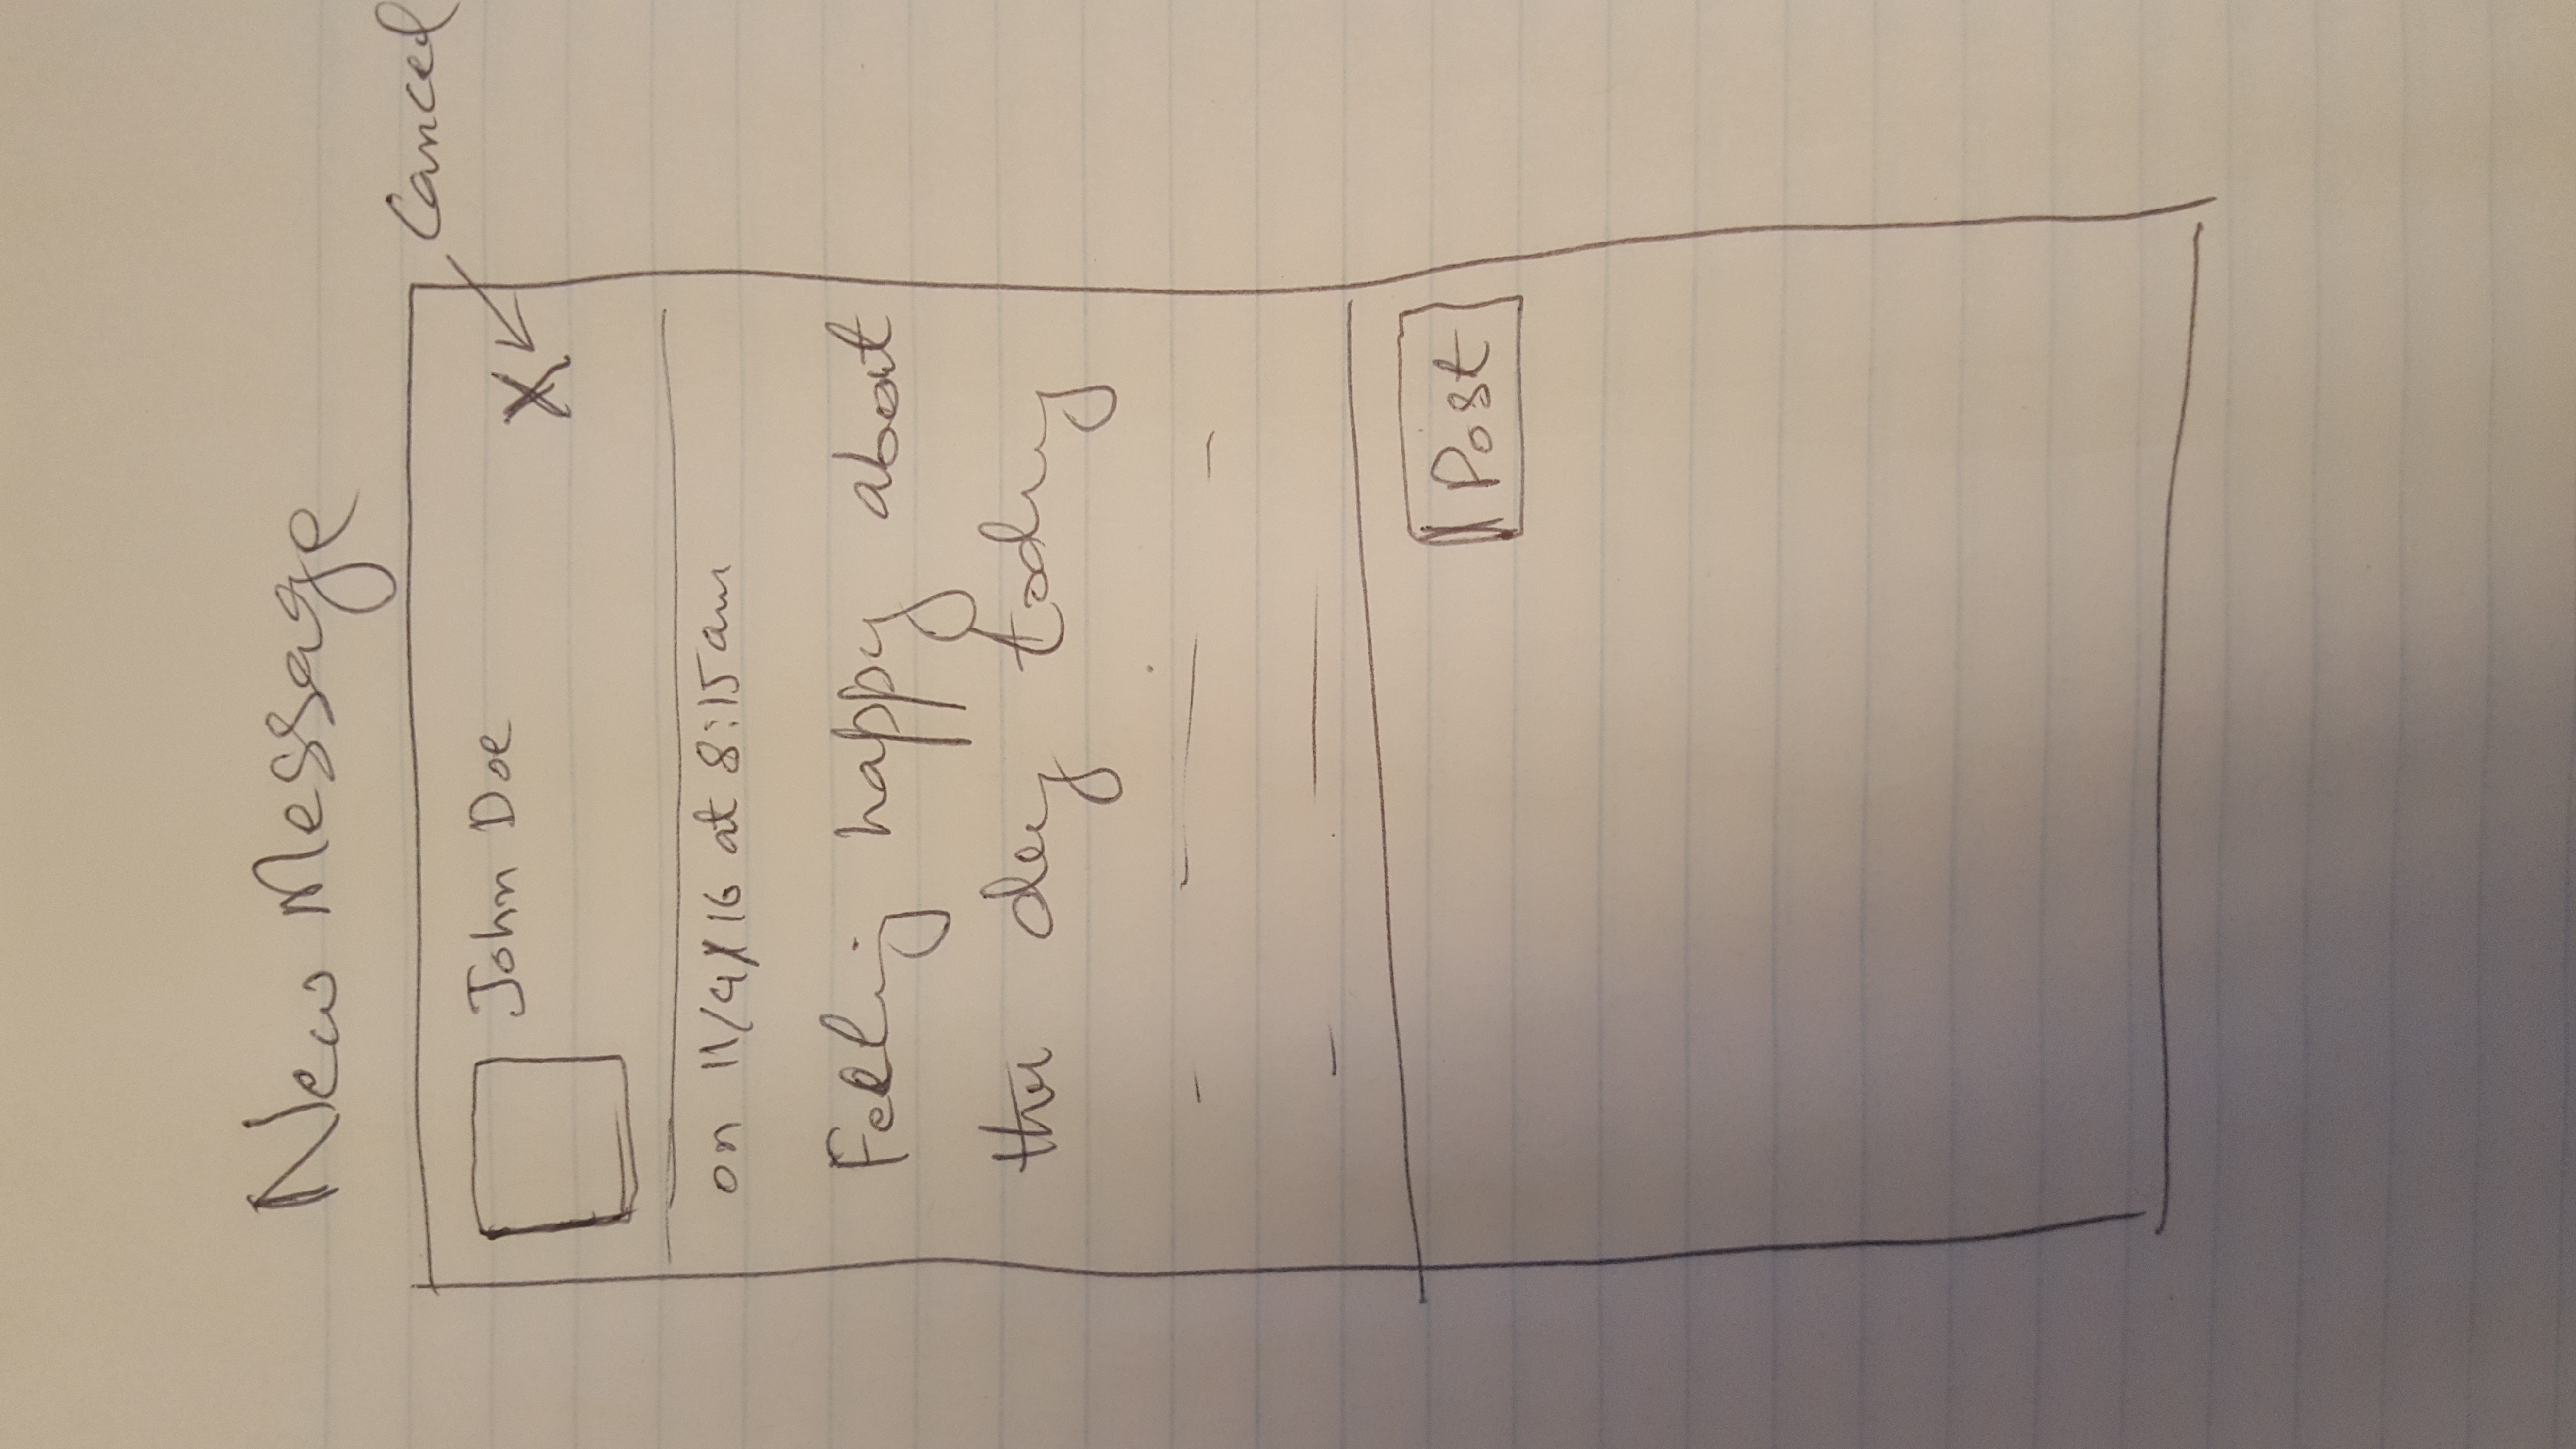 New Message
Cancel
John Doe
X
on 11/4/16 at 8:15am
Feeling happy about
the day today
Post